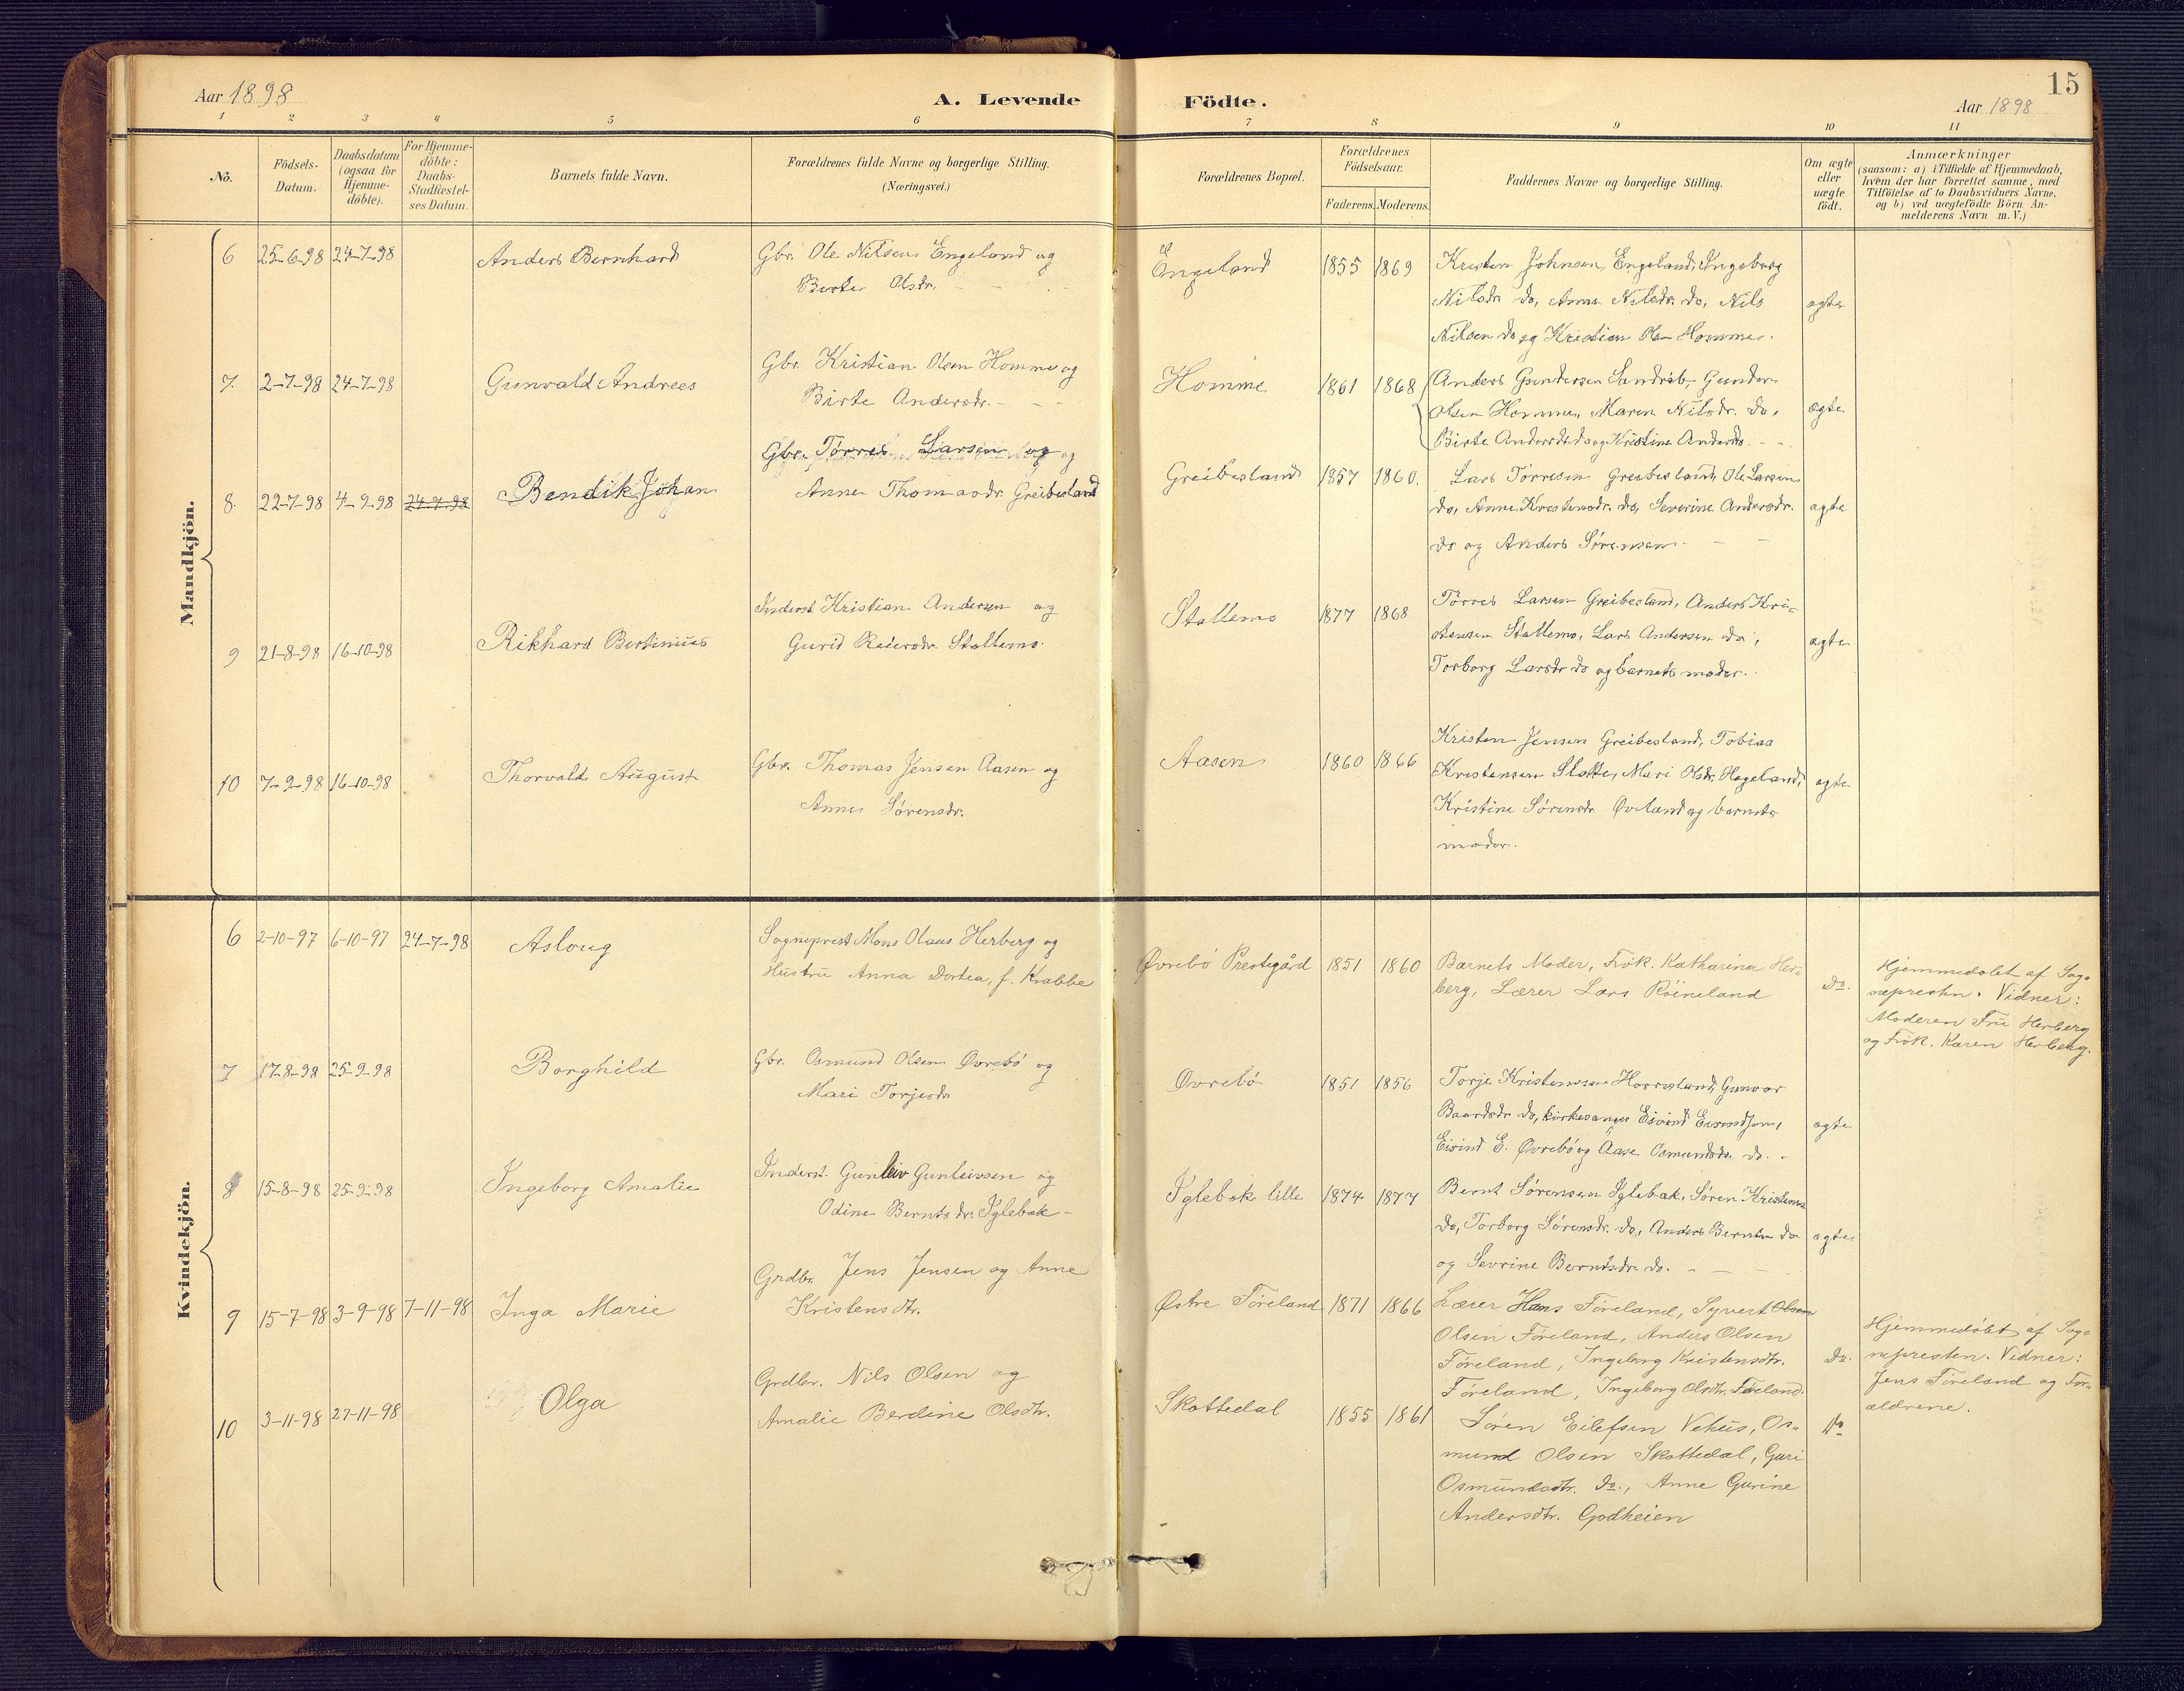 15
Aar 1898
A. Levende Födte.
Aar 1898
1 2 3 4 5 6 7 8 9 10 11
No.
Födsels-Datum.
Daabsdatum (ogsaa for Hjemme-döbte).
For Hjemme-döbte: Daabs-Stadfæstel-ses Datum.
Barnets fulde Navn.
Forældrenes fulde Navne og borgerlige Stilling.
(Næringsvei.)
Forældrenes Bopæl.
Forældrenes Födselsaar.
Faderens. Moderens.
Faddernes Navne og borgerlige Stilling.
Om ægte eller uægte födt.
Anmærkninger
(saasom: a) i Tilfælde af Hjemmedaab,
hvem der har forrettet samme, med
Tilföielse af to Daabsvidners Navne,
og b) ved uægtefödte Börn An-
melderens Navn m. V.)
Mandkjön.
6 25-6-98 24-7-98 Anders Bernhard
Gbr. Ole Nilsen Engeland og
Berte Olsdr. - -
Engeland 1855 1869
Kristen Johnsen Engeland, Ingeborg
Nilsdr do, Anna Nilsdr. do, Nils
Nilsen do og Kristian Olsen Homme.
ægte
7. 2-7-98 24-7-98 Gunvald Andrees
Gbr. Kristian Olsen Homme og
Birte Andersdr. - -
Homme 1861 1868
Anders Gundersen Gunder
Olsen Homme, Maren Nilsdr. do,
Birte Andersdr do og Kristine Andersdr - -
ægte
8. 22-7-98 4-9-98 24-7-98 Bendik Johan
Gbr. Tørres Larsen og
Anne Thomasdr. Greibesland
Greibesland 1857 1860.
Lars Tørresen Greibesland, Ole Larsen
do, Anne Kristensdr. do, Severine Andersdr.
do og Anders Sørensen - -
ægte
9 21-8-98 16-10-98 Rikhard Bertinius
Inderst Kristian Andersen og
Gurid Reiersdr. Stallemo.
Stallemo 1877 1868
Tørres Larsen Greibesland, Anders Kri-
stensen Stallemo, Lars Andersen do,
Torborg Larsdr do og barnets moder.
ægte
10 7-9-98 16-10-98 Thorvald August
Gbr. Thomas Jensen Aasen og
Anne Sørensdr.
Aasen 1860 1866
Kristen Jensen Greibesland, Tobias
Kristensen Slotte, Mari Olsdr. Hageland,
Kristine Sørensdr. Øvland og barnets
moder.
ægte
Kvindekjön.
6 2-10-97 6-10-97 24-7-98 Aslaug
Sogneprest Mons Olaus Herberg og
Hustru Anna Dortea, f. Krabbe
Øvrebö Prestegård 1851 1860
Barnets Moder, Frök. Katharina Her-
berg, Lærer Lars Röineland
Do.
Hjemmedøbt af Sog-
nepresten. Vidner:
Moderen Fru Herberg
og Frök. Karen Herberg.
7 17-8-98 25-9-98 Borghild
Gbr. Osmund Olsen Øvrebö og
Mari Torjesdr
Øvrebö 1851 1856
Torje Kristensen Horresland, Gunvor
Baardsdr do, kirkesanger Eivind Eivindsen,
Eivind E. Øvrebö og Aase Osmundsdr do. -
ægte
8 15-8-98 25-9-98 Ingeborg Amalie
Inderst. Gunleiv Gunleivsen og
Odine Berntsdr. Iglebæk -
Iglebæk lille 1874 1877
Bernt Sørensen Iglebæk, Søren Kristensen
do, Torborg Sørensdr. do, Anders Berntsen do
og Sevrine Berntsdr. do. - -
ægte
9 15-7-98 3-9-98 7-11-98 Inga Marie
Grdbr. Jens Jensen og Anne
Kristensdtr.
Østre Føreland 1871 1866
Lærer Hans Føreland, Syvert Olsen
Olsen Føreland, Anders Olsen
Føreland, Ingeborg Kristensdtr.
Føreland, Ingeborg Olsdtr. Føreland.
Do.
Hjemmedøbt af Sog-
nepresten. Vidner:
Jens Føreland og For-
ældrene.
10 3-11-98 27-11-98 Olga
Grdbr. Nils Olsen og
Amalie Berdine Olsdtr.
Skottedal 1855 1861
Søren Eilefsen Vehus, Os-
mund Olsen Skottedal, Guri
Osmundsdtr. do., Anne Gurine
Andersdtr. Godheien
Do